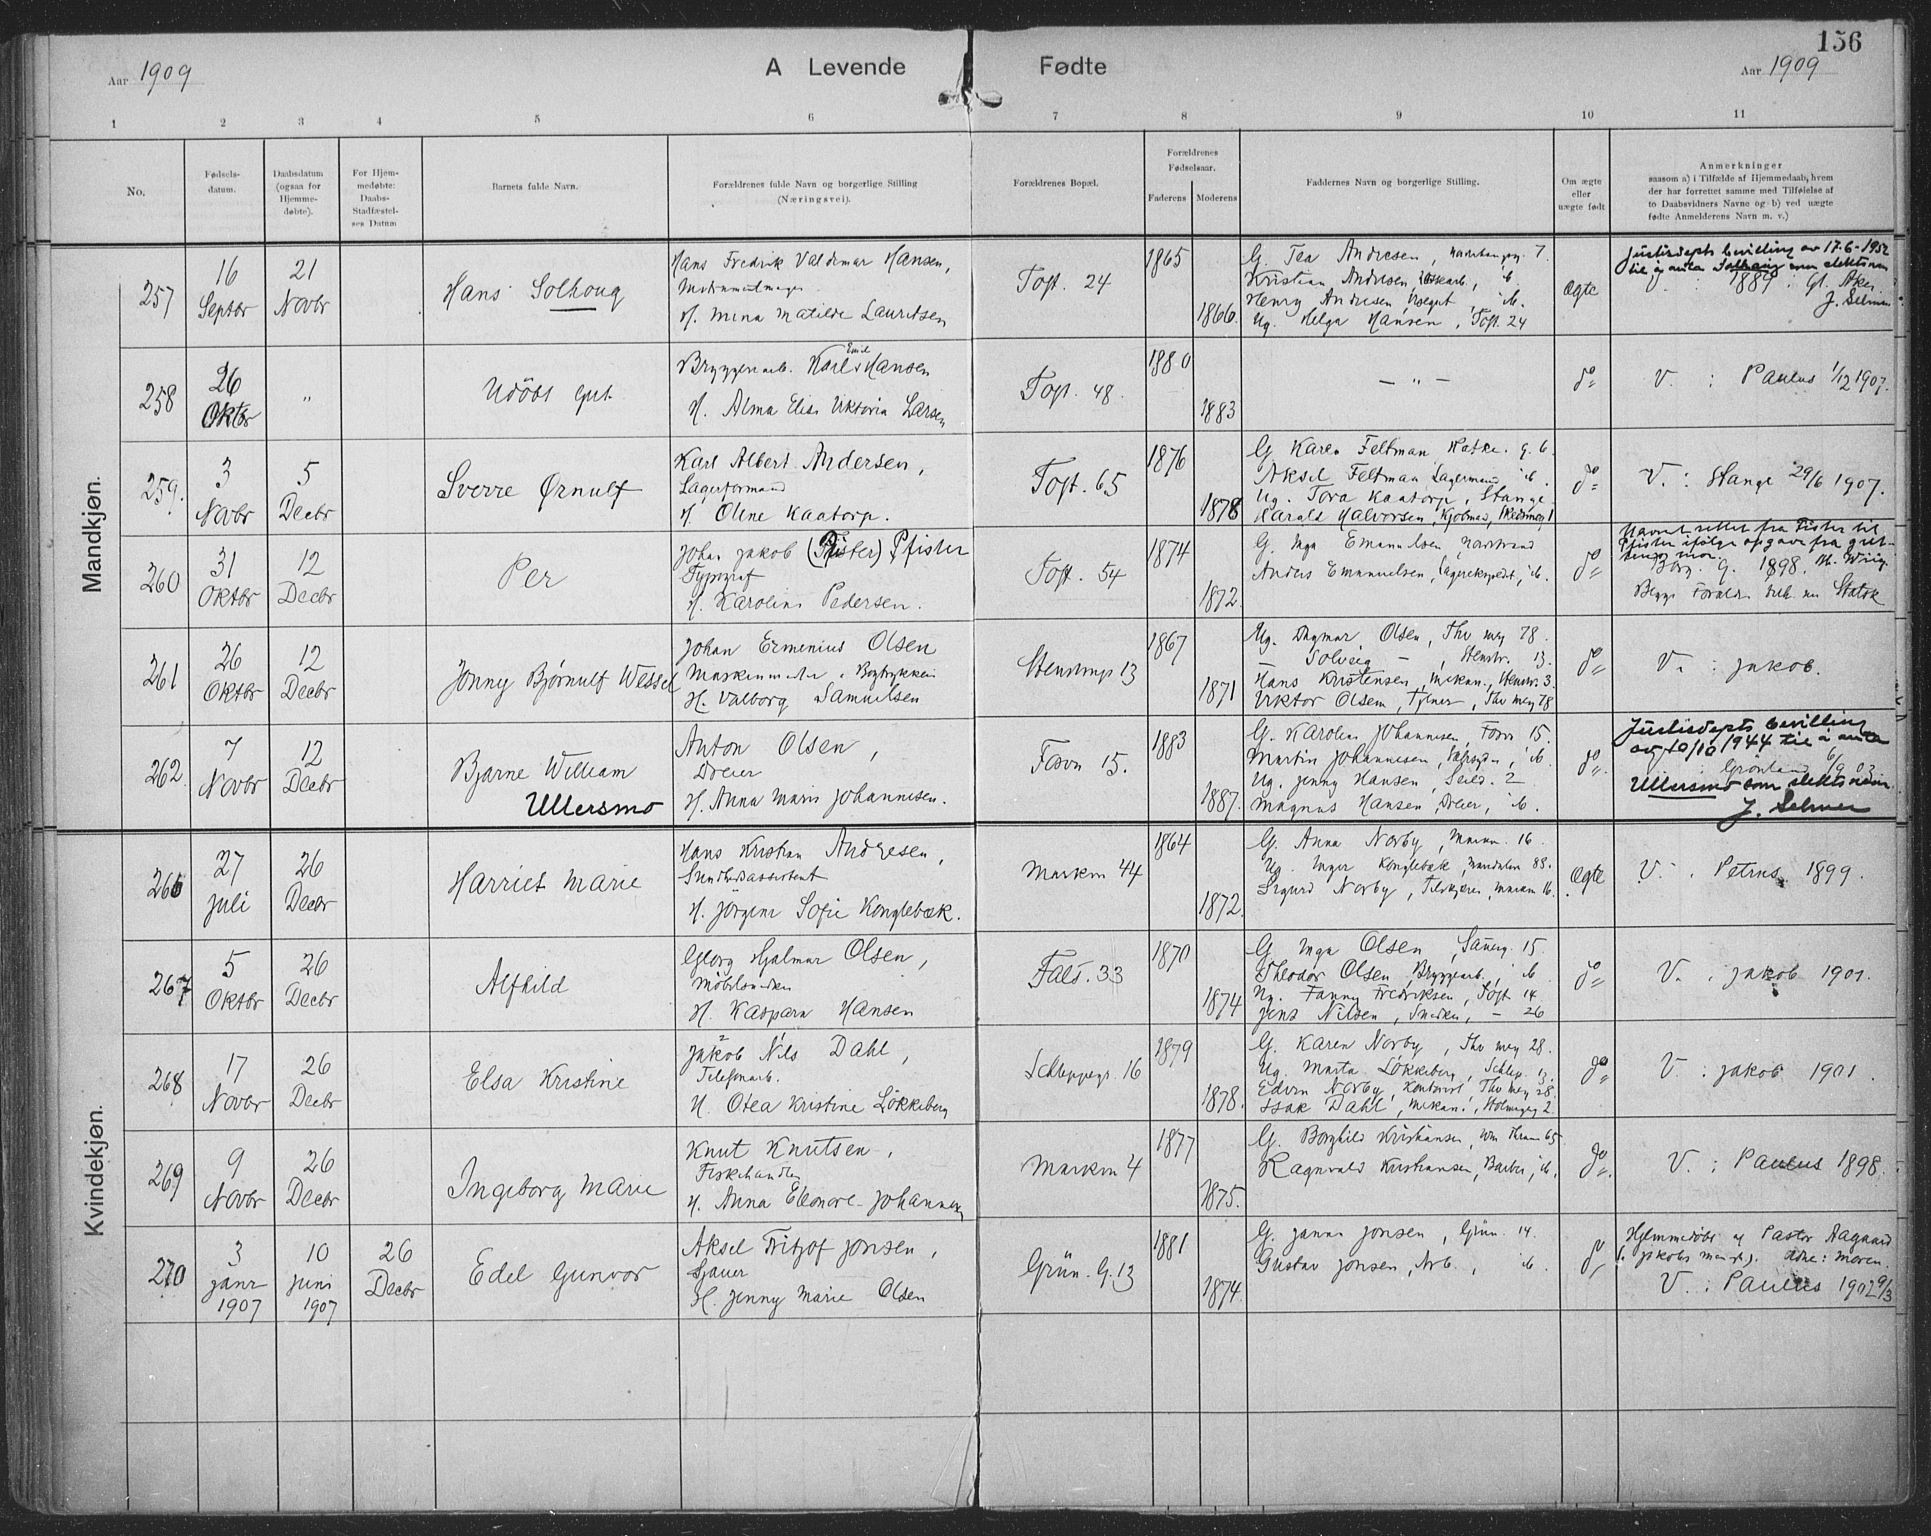 156
Aar 1909
A Levende Fødte
Aar 1909
1 2 3 4 5 6 7 8 9 10 11
No.
Fødsels-
datum.
Daabsdatum
(ogsaa for
Hjemme-
døbte).
For Hjem-
medøbte:
Daabs-
Stadfæstel-
ses Datum
Barnets fulde Navn.
Forældrenes fulde Navn og borgerlige Stilling
(Næringsvei).
Forældrenes Bopæl.
Forældrenes
Fødselsaar.
Faderens Moderens
Faddernes Navn og borgerlige Stilling.
Om ægte
eller
uægte født
Anmerkninger
saasom a) i Tilfælde af Hjemmedaab, hvem
der har forrettet samme med Tilføielse af
to Daabsvidners Navne og b) ved uægte
fødte Anmelderens Navn m. v.)
Mandkjøn.
257
16
Septbr
21
Novbr
Hans Solhoug
Hans Fredrik Valdemar Hansen,
H. Mina Matilde Lauritsen
Toft. 24
1865
1866.
G. Tea Andresen, 7.
Kristian Andresen, ib
Henry Andresen, ib.
Ug. Helga Hansen, Toft. 24
Ægte
Justisdepts bevilling av 17-6-1952
til å anta Solhaug som slektsnavn
1889. Gl. Aker.
J. Selmer
258
26
Oktbr
"
Udöbt Gut
Bryggeriarb. Karl Emil Hansen
H. Alma Elise Viktoria Larsen
Toft. 48.
1880
1883
— " —
do
V. : Paulus 1/12 1907.
259.
3
Novbr
5
Decbr
Sverre Ørnulf
Karl Albert Andersen,
Lagerformand
H. Oline Kaatorp.
Toft. 65
1876
1878
G. Karen Feltman g. 6.
Aksel Feltman Lagermand ib.
Ug. Tora Kaatorp, Stange
Harald Halvorsen, Kjøbmd,
do
V. : Stange 29/6 1907.
260
31
Oktbr
12
Decbr
Per
Johan Jakob (Fister) Pfister
Typograf
H. Karoline Pedersen.
Toft. 54
1874
1872.
G. Inga Emanuelsen,
Anders Emanuelsen, Lagerekspedt, ib.
do
Navnet rettet fra Fister til
Pfister ifølge opgave fra gut-
tens mor. M. Wiig.
Borg. g. 1898.
Begge Foræld. tilh. nu Statsk
261
26
Oktbr
12
Decbr
Jonny Bjørnulf Wessel
Johan Ermenius Olsen
Maskinmester i Bogtrykkeri
H. Valborg Samuelsen
Stenstrup 13
1867
1871
Ug. Dagmar Olsen, Thv mey 78.
— Solveig —, Stenstr. 13.
Hans Kristensen, Mekan., Stenstr. 3.
Viktor Olsen, Thv mey 78
do
V. : Jakob.
262.
7
Novbr
12
Decbr
Bjarne William
Ullersmo
Anton Olsen,
Dreier
H. Anna Marie Johannesen.
Fossvn 15.
1883
1887.
G. Karoline Johannesen, Fossv 15.
Martin Johannesen, ib.
Ug. Jenny Hansen, Seild. 2
Magnus Hansen, Dreier, ib.
do.
Justisdepts bevilling
av 10/10 1944 til å anta
Grønland 6/9 03
Ullersmo som slektsnavn
J. Selmer
Kvindekjøn.
266
27
Juli
26
Decbr
Harriet Marie
Hans Kristian Andresen,
Sundhedsassistent
H. Jørgine Sofie Konglebæk.
Markvn 44
1864
1872.
G. Anna Norby, Markvn. 16.
Ug. Inger Konglebæk, 88.
Sigurd Norby, Markvn 16.
Ægte
V. : Petrus 1899.
267
5
Oktbr
26
Decbr
Alfhild
Georg Hjalmar Olsen,
Möbelsnedker
H. Kaspara Hansen
Fals. 33
1870
1874
G. Inga Olsen, 15.
Theodor Olsen, Bryggearb., ib
Ug. Fanny Fredriksen, Toft 14
Jens Nilsen, Snedker, — 26
do
V. : Jakob 1901.
268
17
Novbr
26
Decbr
Elsa Kristine
Jakob Nils Dahl,
Telefonarb.
H. Otea Kristine Løkkeberg
Schleppegr. 16
1879
1878.
G. Karen Norby, Thv mey 28.
Ug. Marta Løkkeberg, Schlep. 13.
Edvin Norby, Kontorist, Thv mey 28.
Isak Dahl, Mekan.,
do
V. : Jakob 1901.
269
9
Novbr
26
Decbr
Ingeborg Marie
Knut Knutsen,
Fiskehandler
H. Anna Eleonore Johannesen
Markvn 4
1877
1875.
G. Borghild Kristiansen, 65.
Ragnvald Kristiansen, Barber, ib.
do.
V. : Paulus 1898.
270
3
Janr
1907
10
Juni
1907
26
Decbr
Edel Gunvor
Aksel Fritjof Jonsen,
Sjauer
H. Jenny Marie Olsen
Grün. G. 13
1881
1874.
G. Janna Jonsen, Grün. 14.
Gustav Jonsen, Arb., ib.
do
Hjemmedøbt af Pastor Aagaard
(i Jakobs men.).
V. : Paulus 1902 9/3